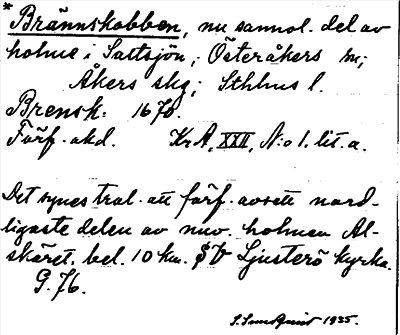 * Brännskobben, nu sannol. del av
holme i Saltsjön; Österåkers sn;
Åkers skg; Sthlms l.
Brensk: 1670.
Förf. okd. KrA, XXII, N:o 1. lit. a.
Det synes tral. att förf. avsett nord-
ligaste delen av nuv. holmen Al-
skäret, bel. 10 km. SV Ljusterö kyrka.
G. 76.
S. Sundquist 1935.